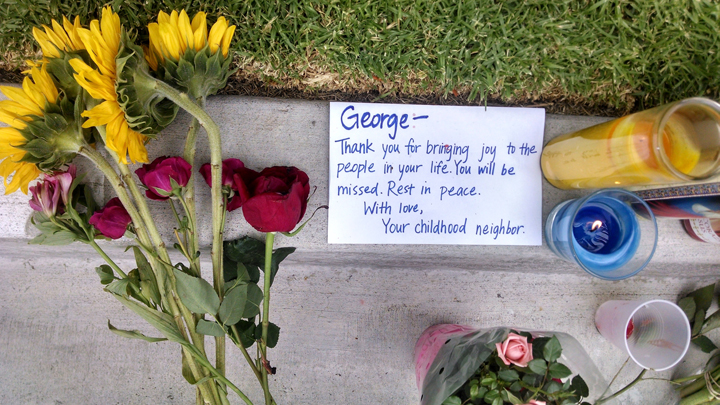 George-
Thank you for bringing joy to the
people in your life. You will be
missed. Rest in peace.
With love,
Your childhood neighbor.